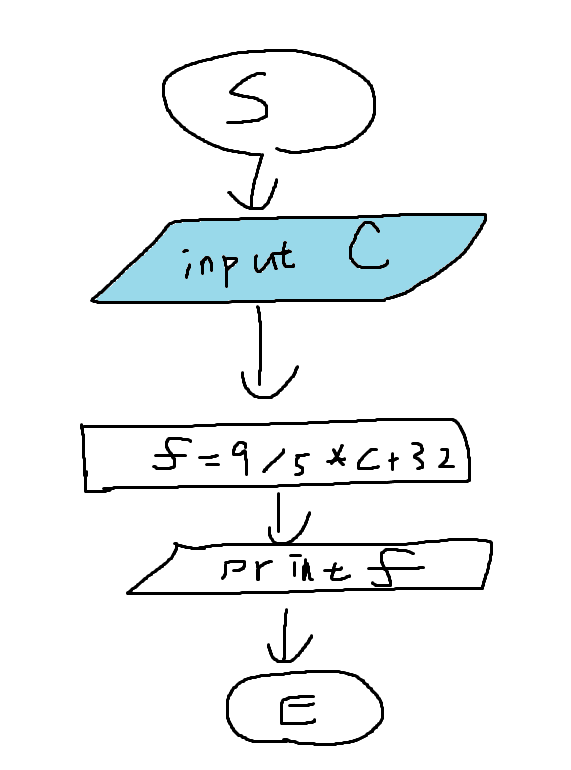 S
input C
f=9/5*c+32
print f
E